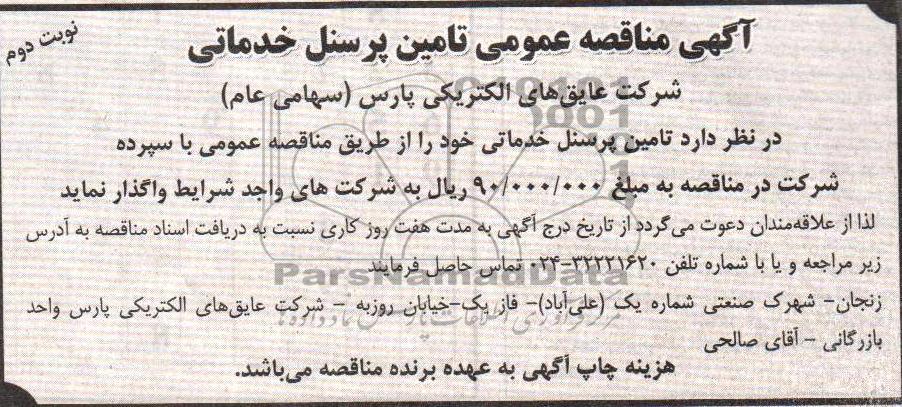 نوبت دوم
آگهی مناقصه عمومی تامین پرسنل خدماتی
شرکت عایق‌های الکتریکی پارس (سهامی عام)
در نظر دارد تامین پرسنل خدماتی خود را از طریق مناقصه عمومی با سپرده
شرکت در مناقصه به مبلغ ۹۰/۰۰۰/۰۰۰ ریال به شرکت های واجد شرایط واگذار نماید
لذا از علاقه‌مندان دعوت می‌گردد از تاریخ درج آگهی به مدت هفت روز کاری نسبت به دریافت اسناد مناقصه به آدرس
زیر مراجعه و یا با شماره تلفن ۳۲۲۲۱۶۲۰-۰۲۴ تماس حاصل فرمایند
ParsNamadData
زنجان- شهرک صنعتی شماره یک (علی‌آباد)- فاز یک-خیابان روزبه - شرکت عایق‌های الکتریکی پارس واحد
بازرگانی - آقای صالحی
هزینه چاپ آگهی به عهده برنده مناقصه می‌باشد.